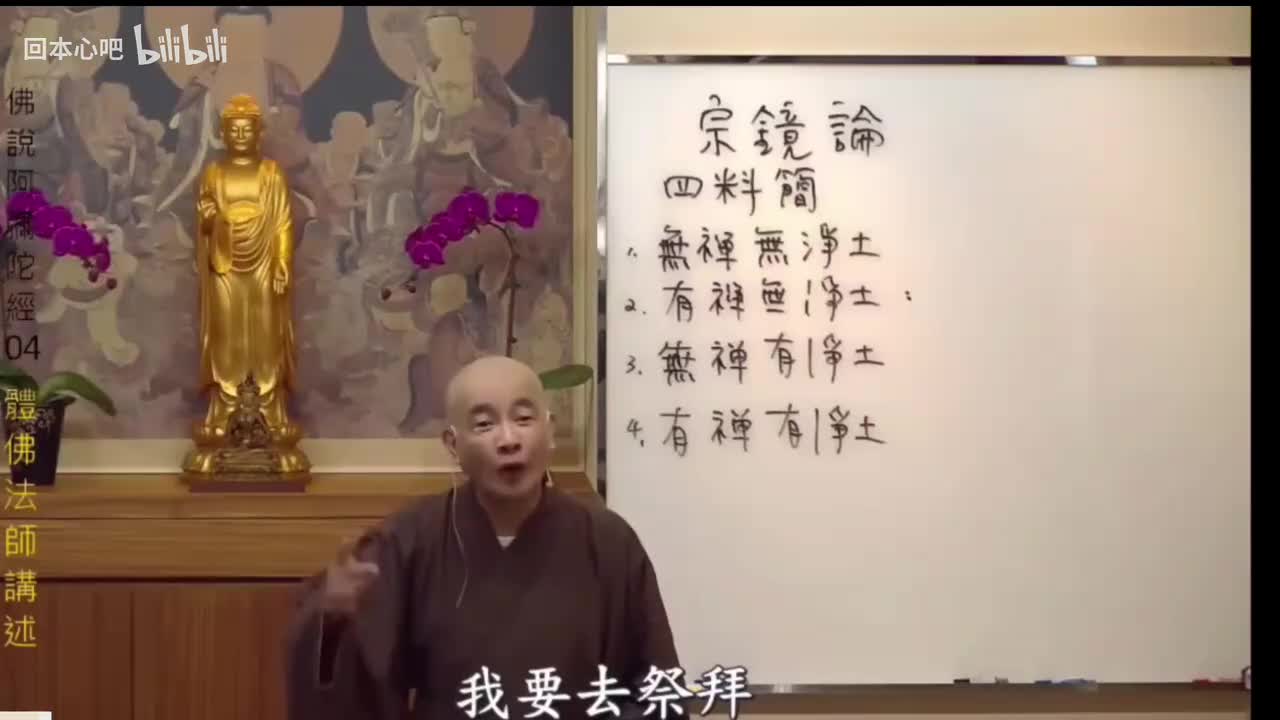 回本心吧 bilibili
佛說阿彌陀經04
體佛法師講述
宗鏡論
四料簡
1. 無禪無淨土
2. 有禪無淨土：
3. 無禪有淨土
4. 有禪有淨土
我要去祭拜